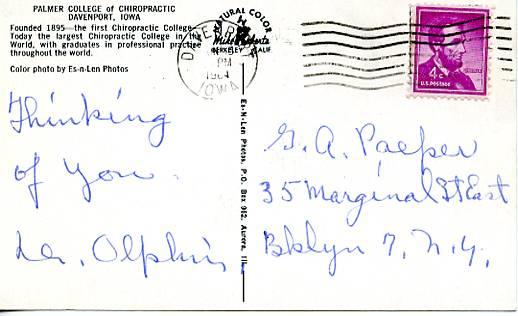 PALMER COLLEGE of CHIROPRACTIC
DAVENPORT, IOWA
Founded 1895—the first Chiropractic College.
Today the largest Chiropractic College in the
World, with graduates in professional practice
throughout the world.
Color photo by Es-n-Len Photos
NATURAL COLOR
BERKELEY CALIF
PM
1964
IOWA
4c
U.S. POSTAGE
Es-N-Len Photos, P.O. Box 982, Aurora, Ill.
Thinking
of You.
G. A. Paeper
35 Marginal St East
Bklyn 7, N.Y.